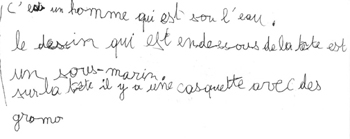 C'est un homme qui est sou l'eau.
le dessin qui est endessous de la tete est
un sous-marin.
sur la tete il y a une casquette avec des
gromo